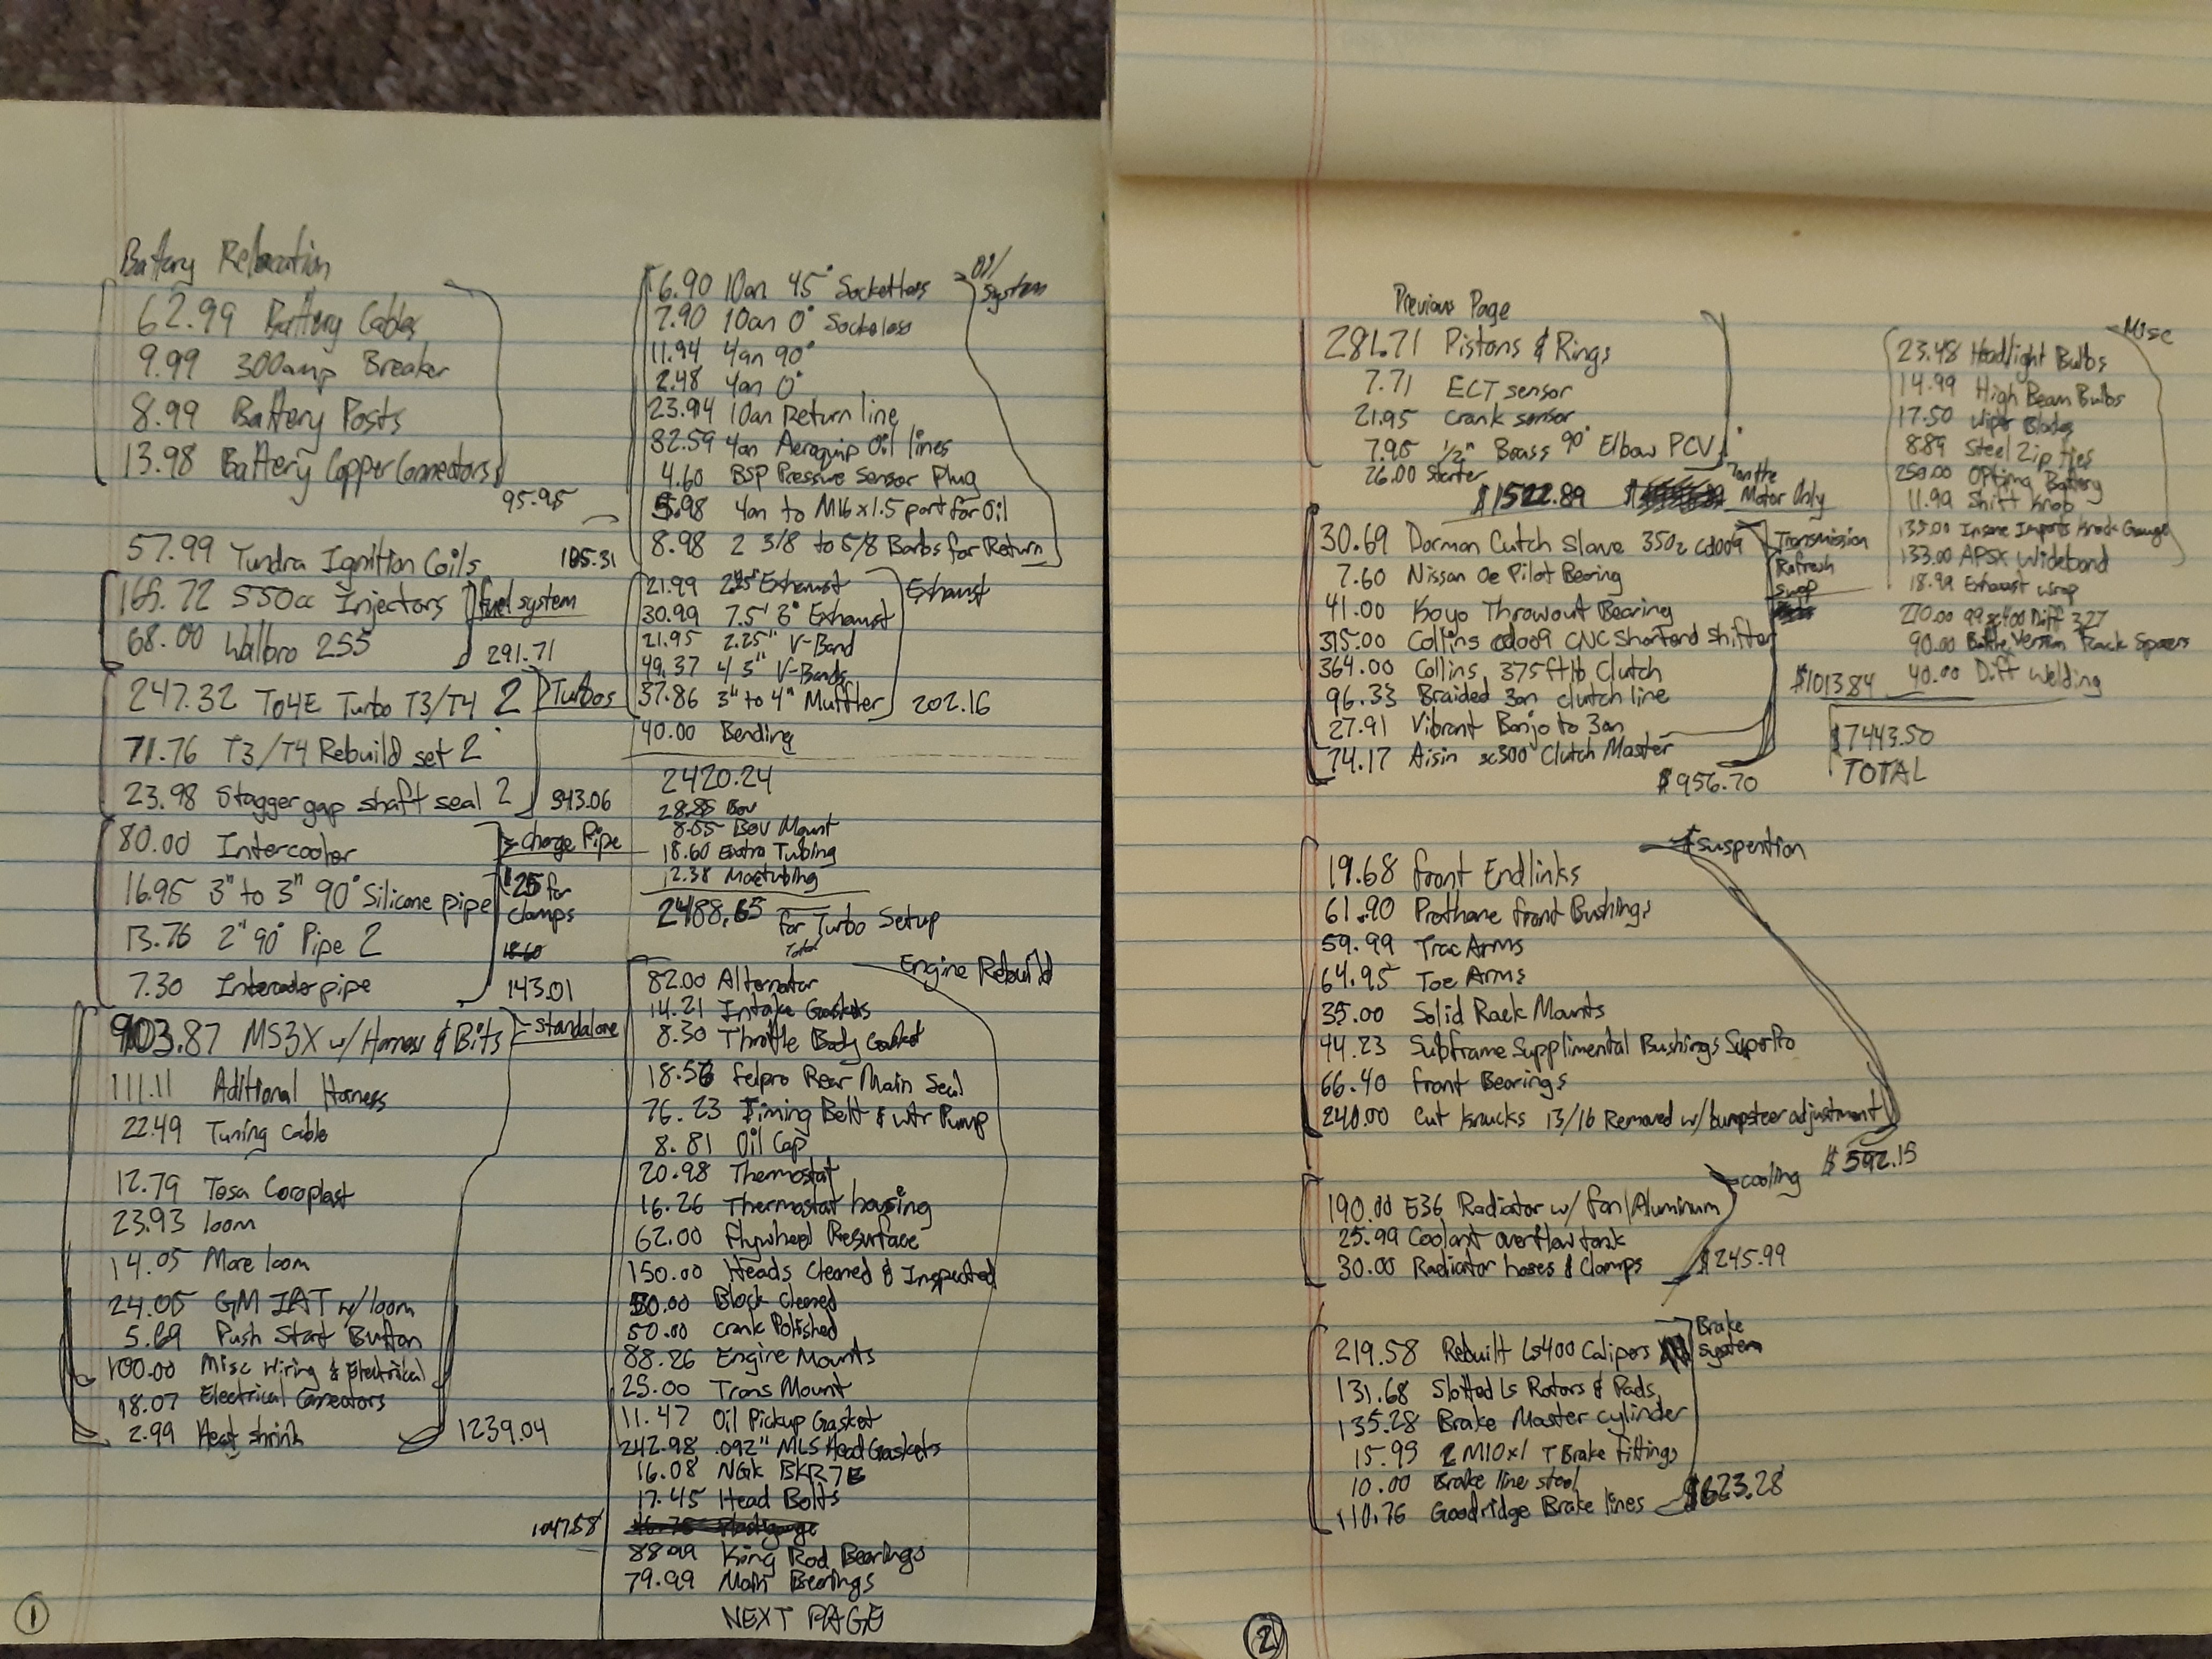 Battery Relocation
62.99 Battery Cables
9.99 300amp Breaker
8.99 Battery Posts
13.98 Battery Copper Connectors
95.95
57.99 Tundra Ignition Coils
165.72 550cc Injectors
fuel system
68.00 Walbro 255
291.71
247.32 T04E Turbo T3/T4 2
Turbos
71.76 T3/T4 Rebuild set 2
23.98 Stagger gap shaft seal 2
343.06
80.00 Intercooler
Charge Pipe
16.95 3" to 3" 90° Silicone pipe
$25 for
clamps
13.76 2" 90° Pipe 2
18.60
7.30 Intercooler pipe
143.01
903.87 MS3X w/ Harness & Bits
Standalone
111.11 Aditional Harness
22.49 Tuning Cable
12.79 Tesa Coroplast
23.93 loom
14.05 More loom
24.05 GM IAT w/ loom
5.69 Push Start Button
100.00 Misc Wiring & Electrical
18.07 Electrical Connectors
2.99 Heat shrink
1239.04
①
6.90 10an 45° Socketless
Oil
System
7.90 10an 0° Sockeless
11.94 4an 90°
2.48 4an 0°
23.94 10an Return line
32.59 4an Aeroquip Oil lines
4.60 BSP Pressure Sensor Plug
5.98 4an to M16x1.5 port for Oil
8.98 2 3/8 to 5/8 Barbs for Return
105.31
21.99 2.25" Exhaust
Exhaust
30.99 7.5' 3" Exhaust
21.95 2.25" V-Band
49.37 4 3" V-Bands
37.86 3" to 4" Muffler
202.16
40.00 Bending
2420.24
28.85 Bov
8.55 BOV Mount
18.60 Extra Tubing
12.38 Moretubing
2488.65 for Turbo Setup
Total
Engine Rebuild
82.00 Alternator
14.21 Intake Gaskets
8.30 Throttle Body Gasket
18.56 Felpro Rear Main Seal
76.23 Timing Belt & wtr Pump
8.81 Oil Cap
20.98 Thermostat
16.26 Thermostat housing
62.00 Flywheel Resurface
150.00 Heads Cleaned & Inspected
50.00 Block Cleaned
50.00 Crank Polished
88.26 Engine Mounts
25.00 Trans Mount
11.47 Oil Pickup Gasket
242.98 .092" MLS Head Gaskets
16.08 NGK BKR7E
17.45 Head Bolts
1047.58
88.99 King Rod Bearings
79.99 Main Bearings
NEXT PAGE
Previous Page
281.71 Pistons & Rings
7.71 ECT sensor
21.95 crank sensor
7.95 1/2" Brass 90° Elbow PCV
26.00 Starter
$1522.89
on the
Motor Only
30.69 Dorman Cutch Slave 350z cd009
Transmission
Refresh
Swap
7.60 Nissan Oe Pilot Bearing
41.00 Koyo Throwout Bearing
315.00 Collins cd009 CNC Shortend Shifter
364.00 Collins 375ftlb Clutch
96.33 Braided 3an clutch line
27.91 Vibrant Banjo to 3an
74.17 Aisin sc300 Clutch Master
$956.70
Suspention
19.68 Front Endlinks
61.90 Prothane Front Bushings
59.99 Trac Arms
64.95 Toe Arms
35.00 Solid Rack Mounts
44.23 Subframe Supplimental Bushings SuperPro
66.40 Front Bearings
240.00 Cut Knucks 13/16 Removed w/ bumpsteer adjustment
$592.15
cooling
190.00 E36 Radiator w/ fan/Aluminum
25.99 Coolant overflow tank
30.00 Radiator hoses & Clamps
$245.99
Brake
System
219.58 Rebuilt Ls400 Calipers
131.68 Slotted Ls Rotors & Pads
135.28 Brake Master cylinder
15.99 2 M10x1 T Brake Fittings
10.00 Brake line steel
110.76 Goodridge Brake lines
$623.28
②
Misc
23.48 Headlight Bulbs
14.99 High Beam Bulbs
17.50 Wiper Blades
8.89 Steel Zip Ties
250.00 Optima Battery
11.99 Shift Knob
135.00 Insane Imports Knock Gauge
133.00 APSX Wideband
18.99 Exhaust wrap
270.00 99 sc400 Diff 3.27
90.00 Battle Version Rack Spacers
40.00 Diff Welding
$1013.84
$7443.50
TOTAL